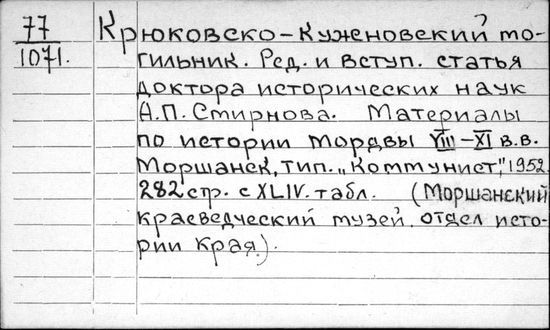 77
1071.
Крюковско-Кужновский мо-
гильник. Ред. и вступ. статья
доктора исторических наук
А.П. Смирнова. Материалы
по истории мордвы VIII-XI в.в.
Моршанск, тип. "Коммунист", 1952.
282 стр. с XLIV. табл. (Моршанский
краеведческий музей. отдел исто-
рии края.).